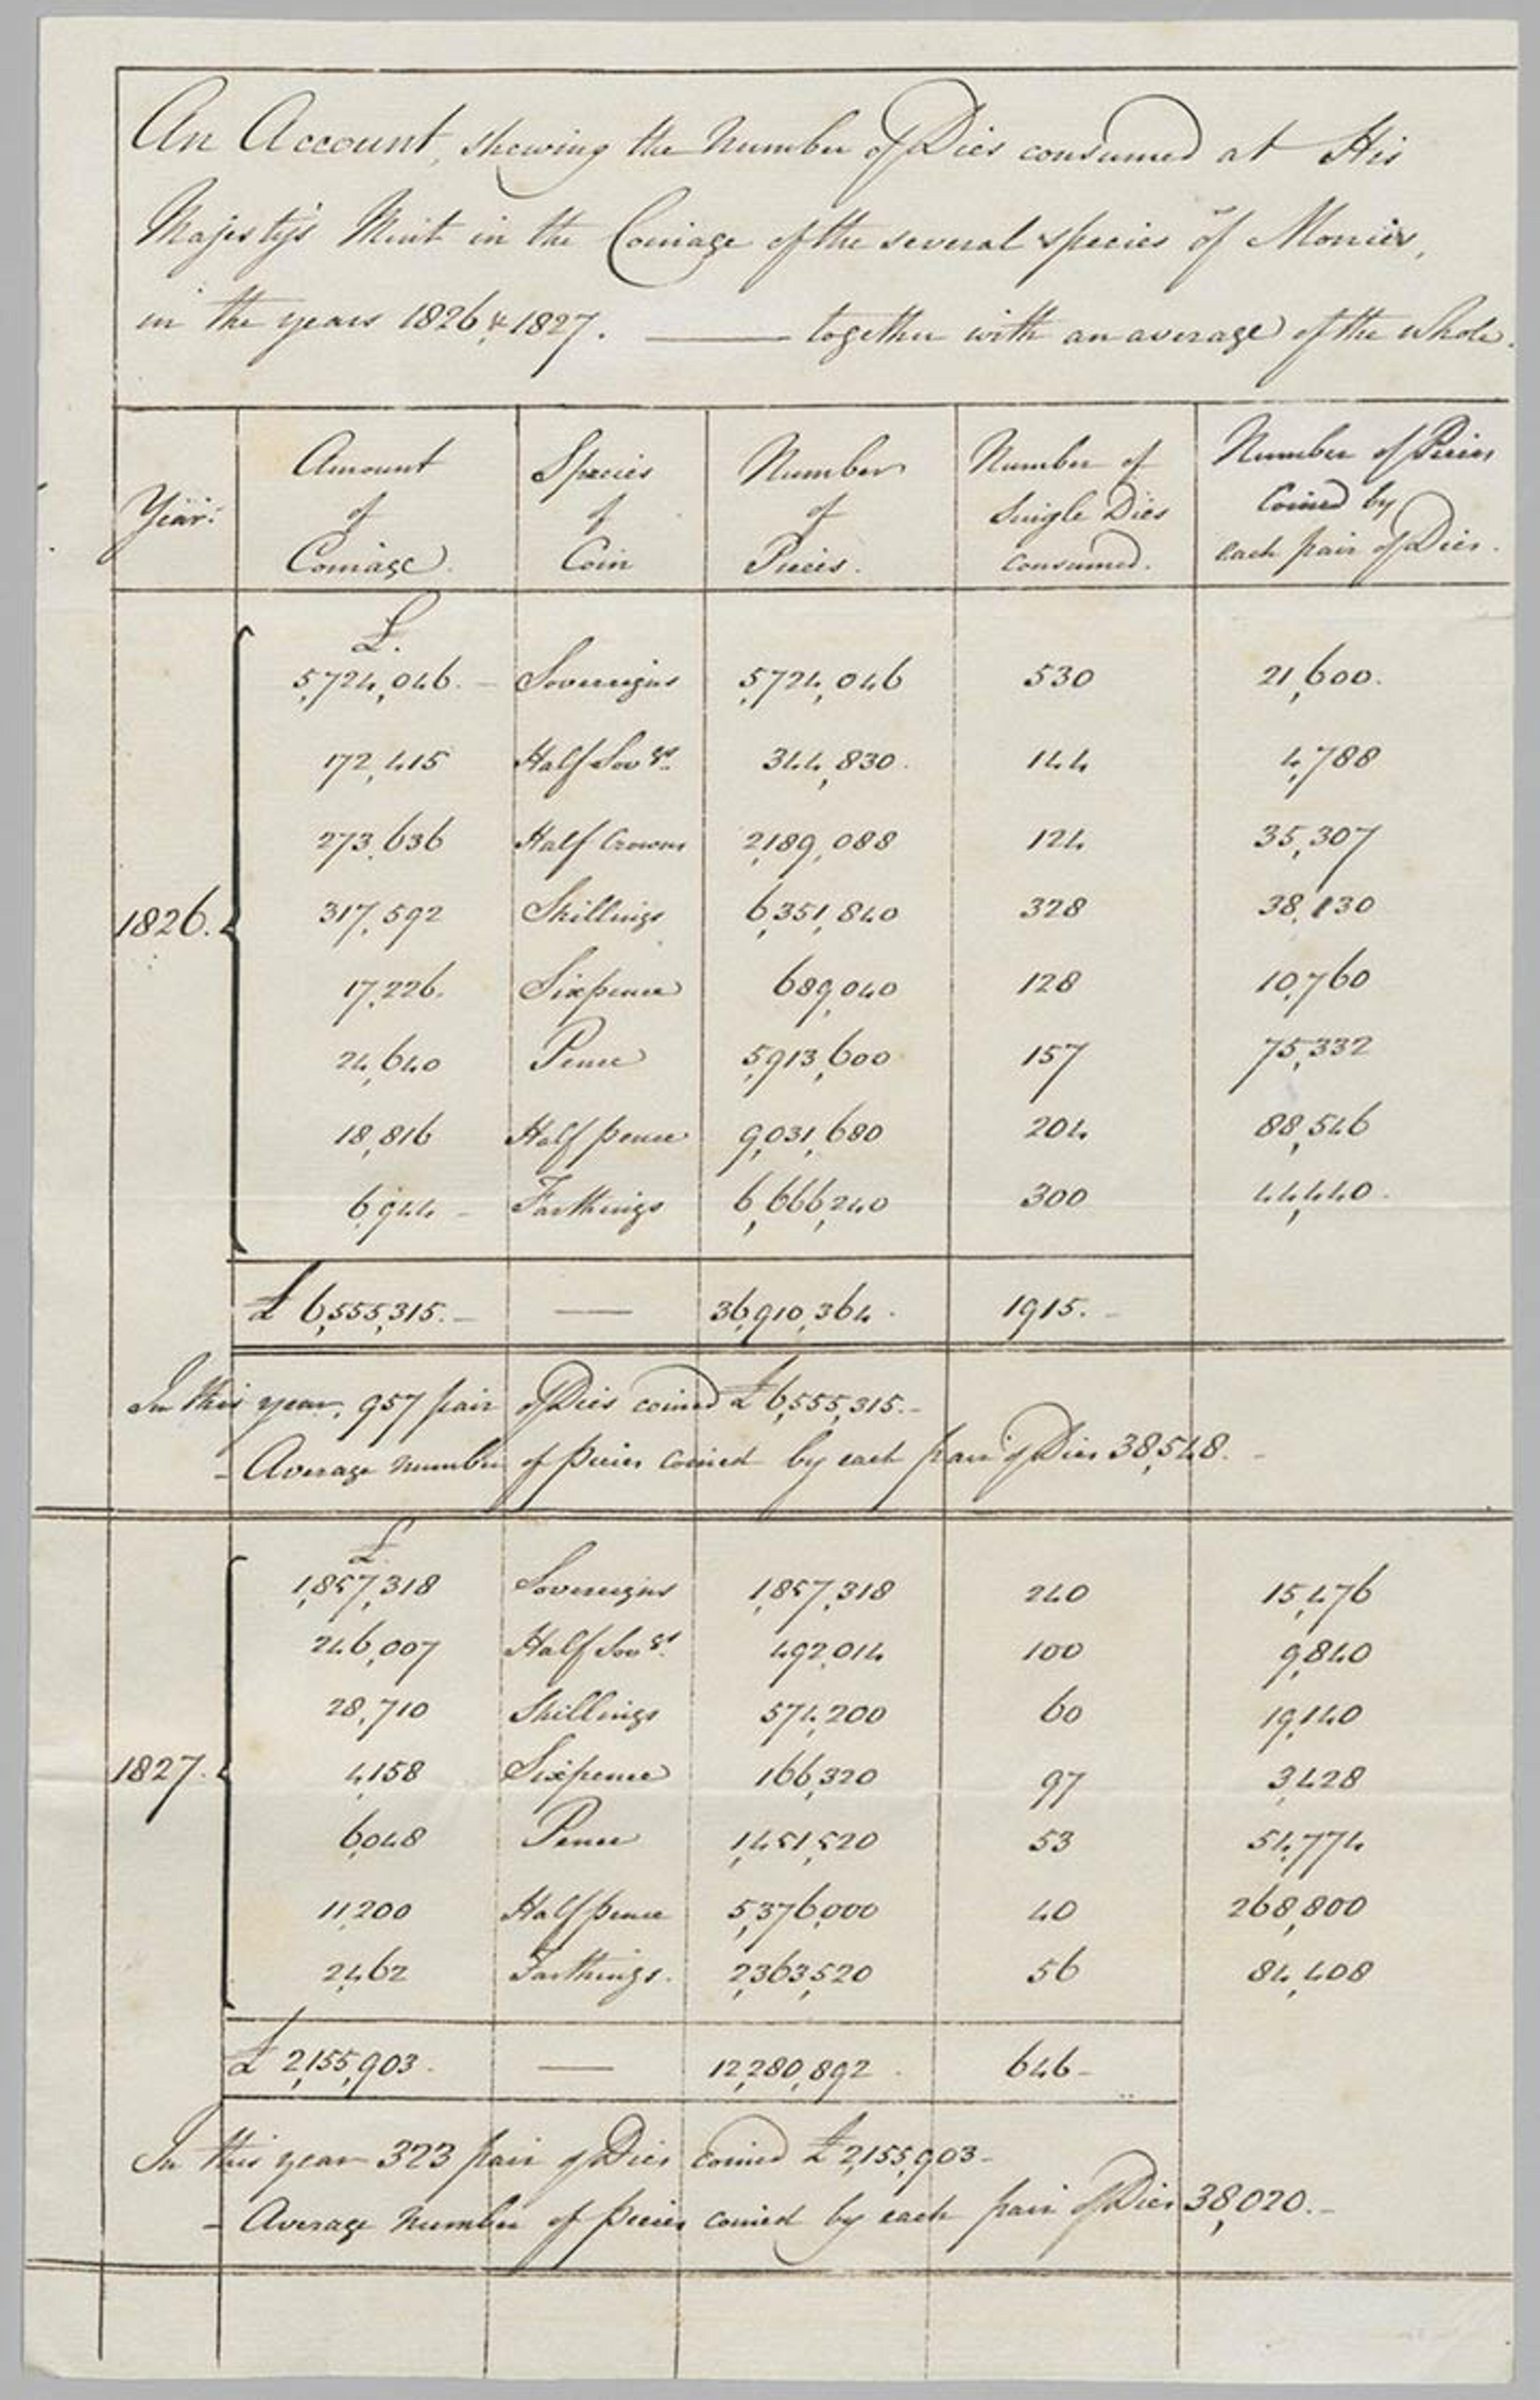 An Account, shewing the Number of Dies consumed at His
Majesty's Mint in the Coinage of the several species of Monies,
in the years 1826 & 1827. ——— together with an average of the whole.
Year. Amount of Coinage. Species of Coin Number of Pieces. Number of Single Dies consumed. Number of Pieces Coined by each pair of Dies.
£.
5,724,046. – Sovereigns 5,724,046 530 21,600.
172,415 Half Sovgs. 344,830. 144 4,788
273,636 Half Crowns 2,189,088 124 35,307
1826. 317,592 Shillings 6,351,840 328 38,130
17,226. Sixpence 689,040 128 10,760
24,640 Pence 5,913,600 157 75,332
18,816 Half pence 9,031,680 204 88,546
6,944 – Farthings 6,666,240 300 44,440.
£ 6,555,315. – —— 36,910,364. 1915. –
In this year, 957 pair of Dies coined £6,555,315. –
– Average number of pieces coined by each pair of Dies 38,548. –
£
1,857,318 Sovereigns 1,857,318 240 15,476
246,007 Half Sovgs. 492,014 100 9,840
28,710 Shillings 574,200 60 19,140
1827. 4,158 Sixpence 166,320 97 3,428
6,048 Pence 1,451,520 53 54,774
11,200 Halfpence 5,376,000 40 268,800
2,462 Farthings. 2,363,520 56 84,408
£ 2,155,903. —— 12,280,892. 646 –
In this year 323 pair of Dies coined £2,155,903 –
– Average Number of pieces coined by each pair of Dies 38,020. –